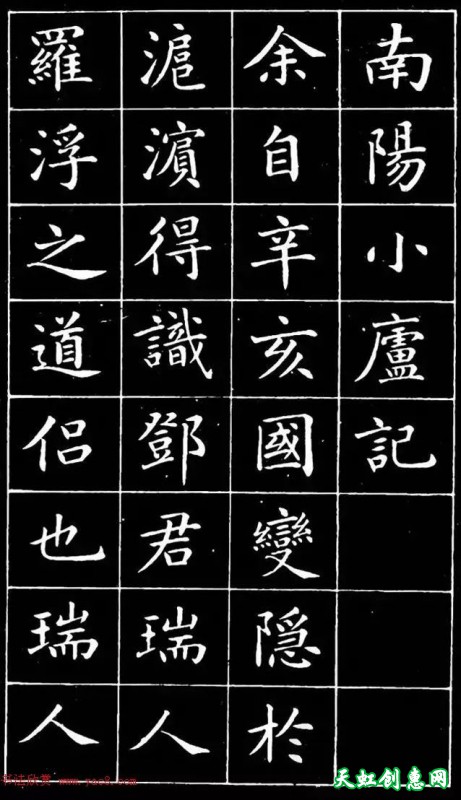 南陽小廬記
余自辛亥國變隱於
滬濱得識鄧君瑞人
羅浮之道侣也瑞人
天虹创惠网